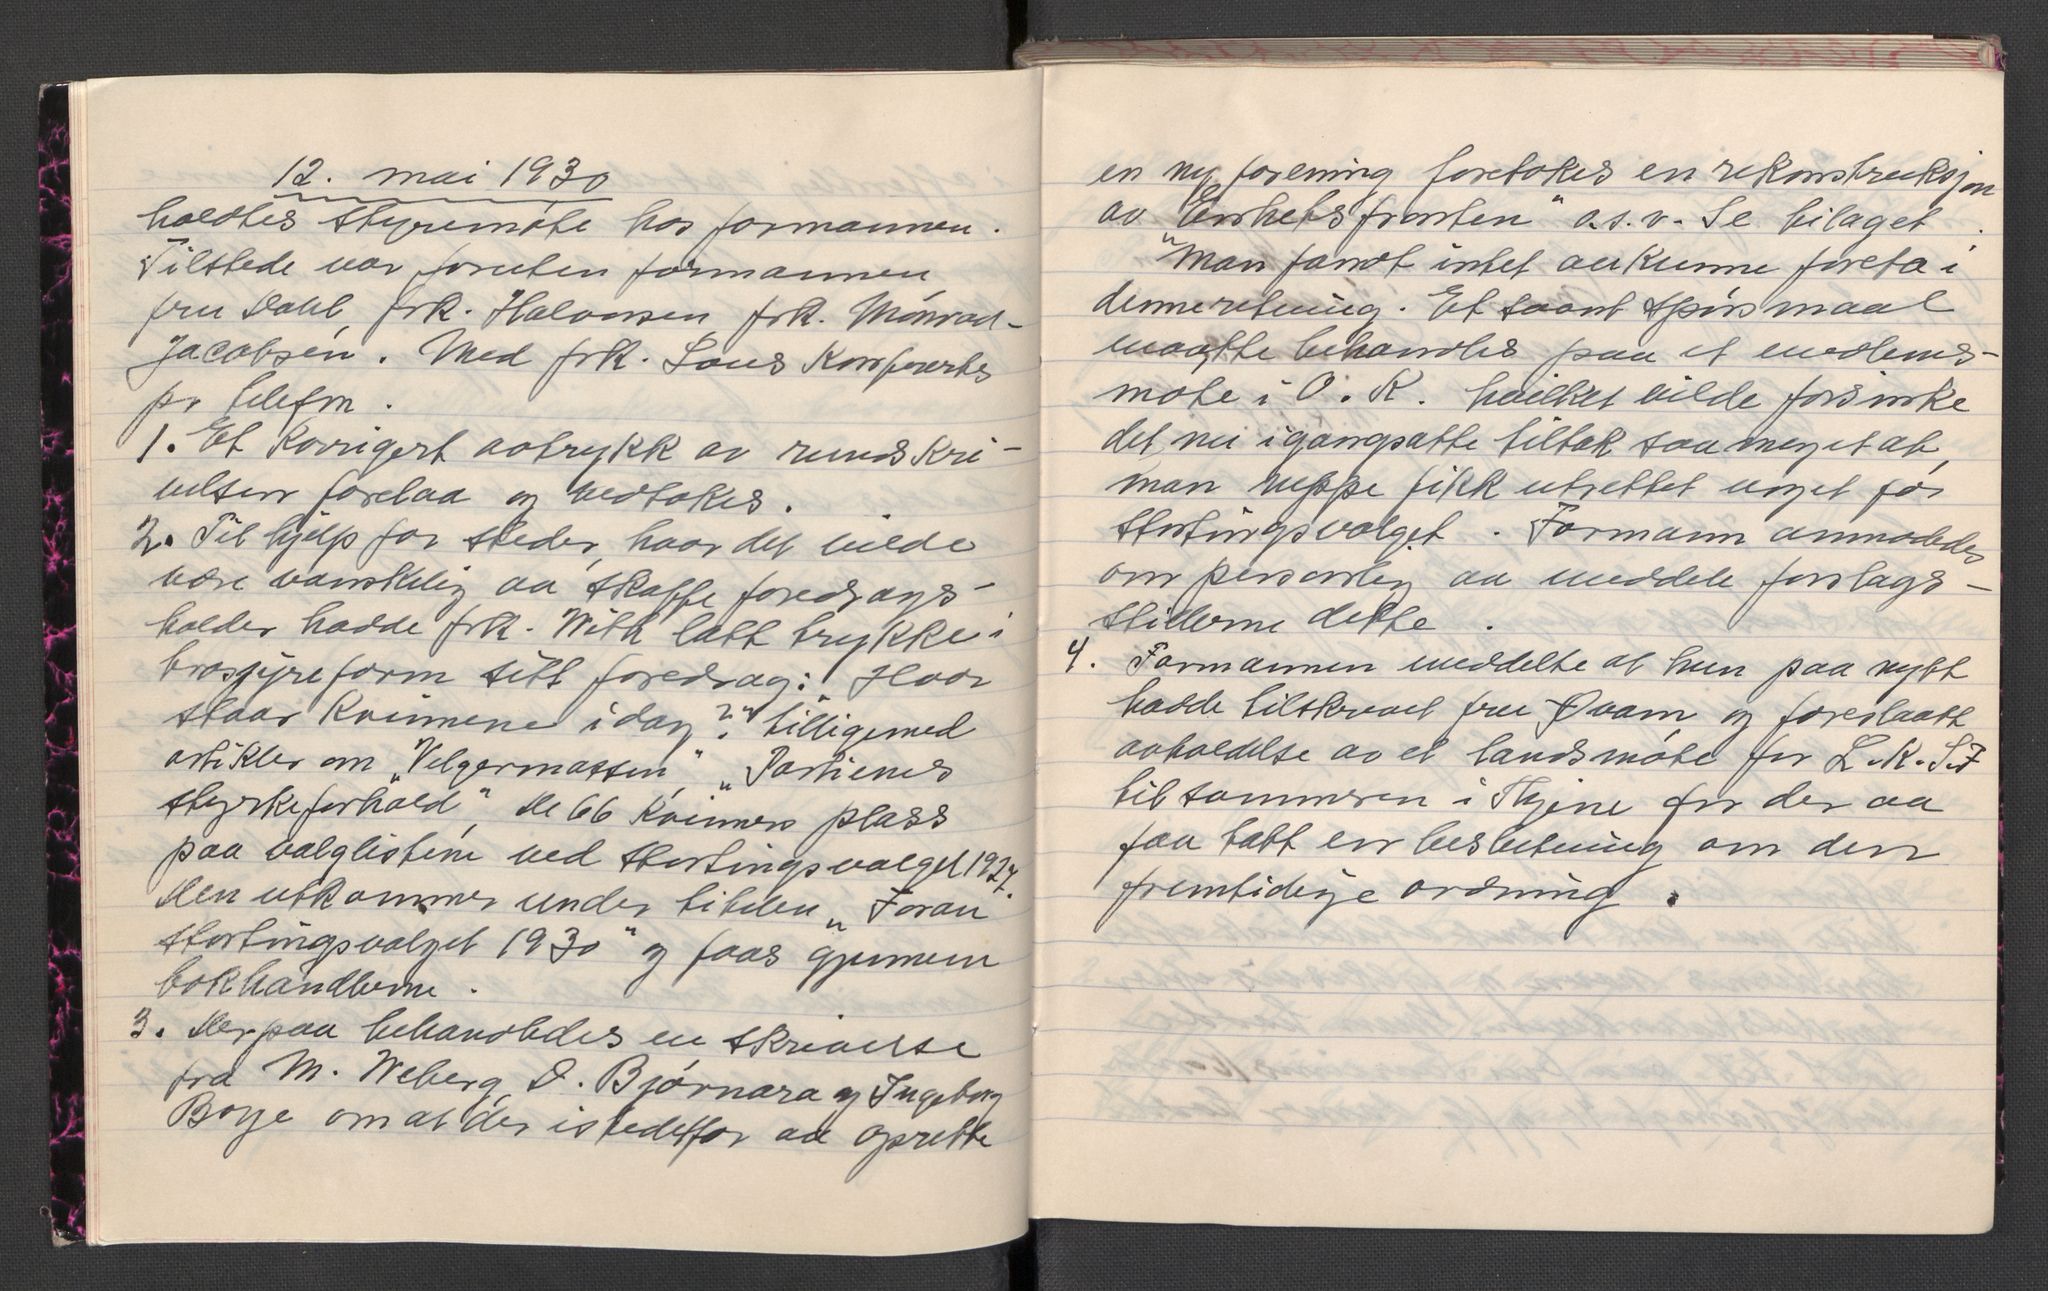 12. mai 1930
holdtes styremøte hos formannen.
Tilstede var foruten formannen
fru Dahl, frk. Halvorsen, frk. Monrad-
Jacobsen. Med frk. Lous konfertes
pr telefon.
1. Et korrigert avtrykk av rundskri-
velsen forelaa og vedtokes.
2. Til hjelp for steder, hvor det vilde
være vanskelig aa skaffe foredrags-
holder hadde frk. With latt trykke i
brosjyreform sitt foredrag: „Hvor
staar kvinnene idag?" tilligemed
artikler om „Velgermassen", „Partienes
styrkeforhold", de 66 kvinners plass
paa valglistene ved stortingsvalget 1927.
Den utkommer under titelen „Foran
stortingsvalget 1930" og faas gjennem
bokhandlerne.
3. Derpaa behandledes en skrivelse
fra M. Weberg, O. Bjørnara og Ingeborg
Borge om at der istedetfor aa oprette
en ny forening foretokes en rekonstruksjon
av "Enhetsfronten" o.s.v. Se bilaget.
Man fandt intet aa kunne foreta i
denne retning. Et saant spørsmaal
maatte behandles paa et medlems-
møte i O. K. hvilket vilde forsinke
det nu igangsatte tiltak saa meget at
man neppe fikk utrettet noget før
stortingsvalget. Formann anmodedes
om personlig aa meddele forslags-
stillerne dette.
4. Formannen meddelte at hun paa nytt
hadde tilskrevet fru Qvam og foreslaatt
avholdelse av et landsmøte for L.K.S.F
til sommeren i Gjene for der aa
faa tatt en beslutning om den
fremtidige ordning.